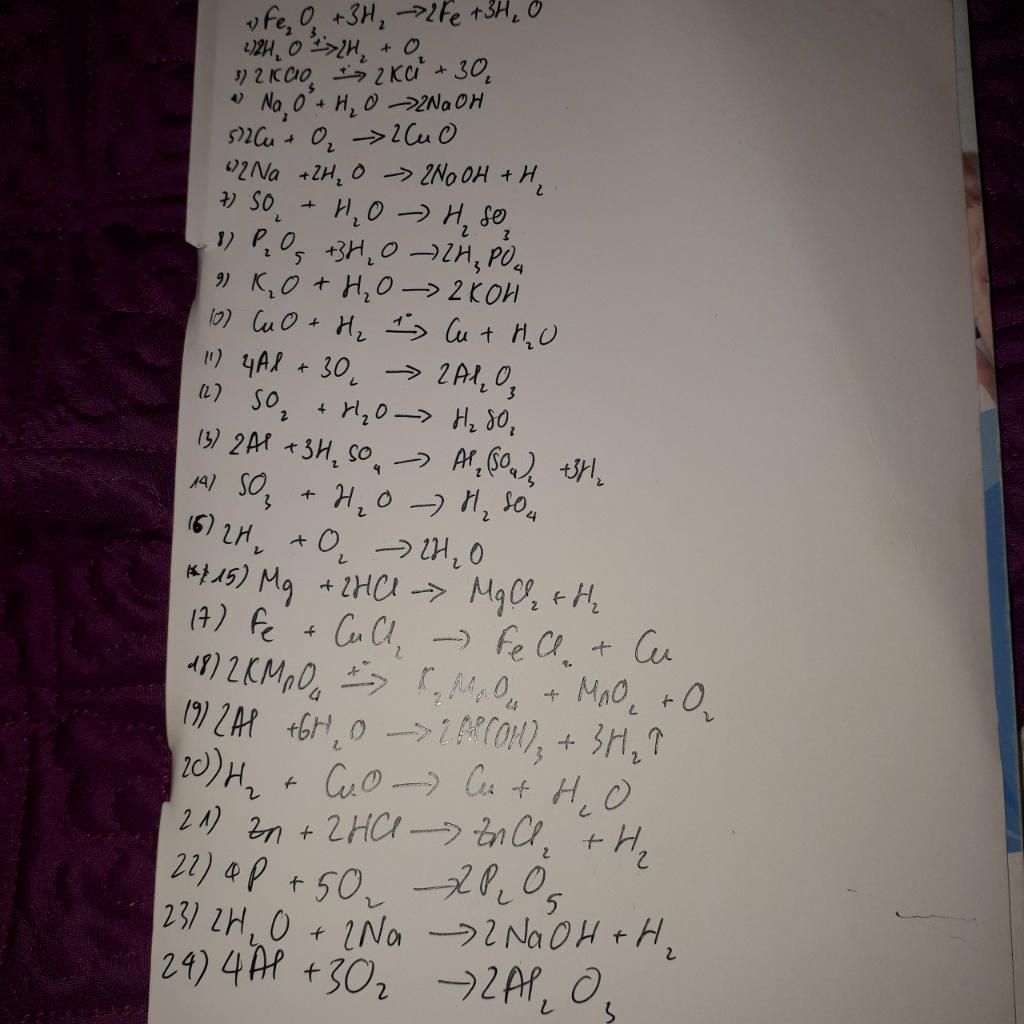 1) Fe₂O₃ + 3H₂ → 2Fe + 3H₂O
2) 2H₂O →t° 2H₂ + O₂
3) 2KClO₃ →t° 2KCl + 3O₂
4) Na₂O + H₂O → 2NaOH
5) 2Cu + O₂ → 2CuO
6) 2Na + 2H₂O → 2NaOH + H₂
7) SO₂ + H₂O → H₂SO₃
8) P₂O₅ + 3H₂O → 2H₃PO₄
9) K₂O + H₂O → 2KOH
10) CuO + H₂ →t° Cu + H₂O
11) 4Al + 3O₂ → 2Al₂O₃
12) SO₂ + H₂O → H₂SO₃
13) 2Al + 3H₂SO₄ → Al₂(SO₄)₃ + 3H₂
14) SO₃ + H₂O → H₂SO₄
16) 2H₂ + O₂ → 2H₂O
15) Mg + 2HCl → MgCl₂ + H₂
17) Fe + CuCl₂ → FeCl₂ + Cu
18) 2KMnO₄ →t° K₂MnO₄ + MnO₂ + O₂
19) 2Al + 6H₂O → 2Al(OH)₃ + 3H₂↑
20) H₂ + CuO → Cu + H₂O
21) Zn + 2HCl → ZnCl₂ + H₂
22) 4P + 5O₂ → 2P₂O₅
23) 2H₂O + 2Na → 2NaOH + H₂
24) 4Al + 3O₂ → 2Al₂O₃